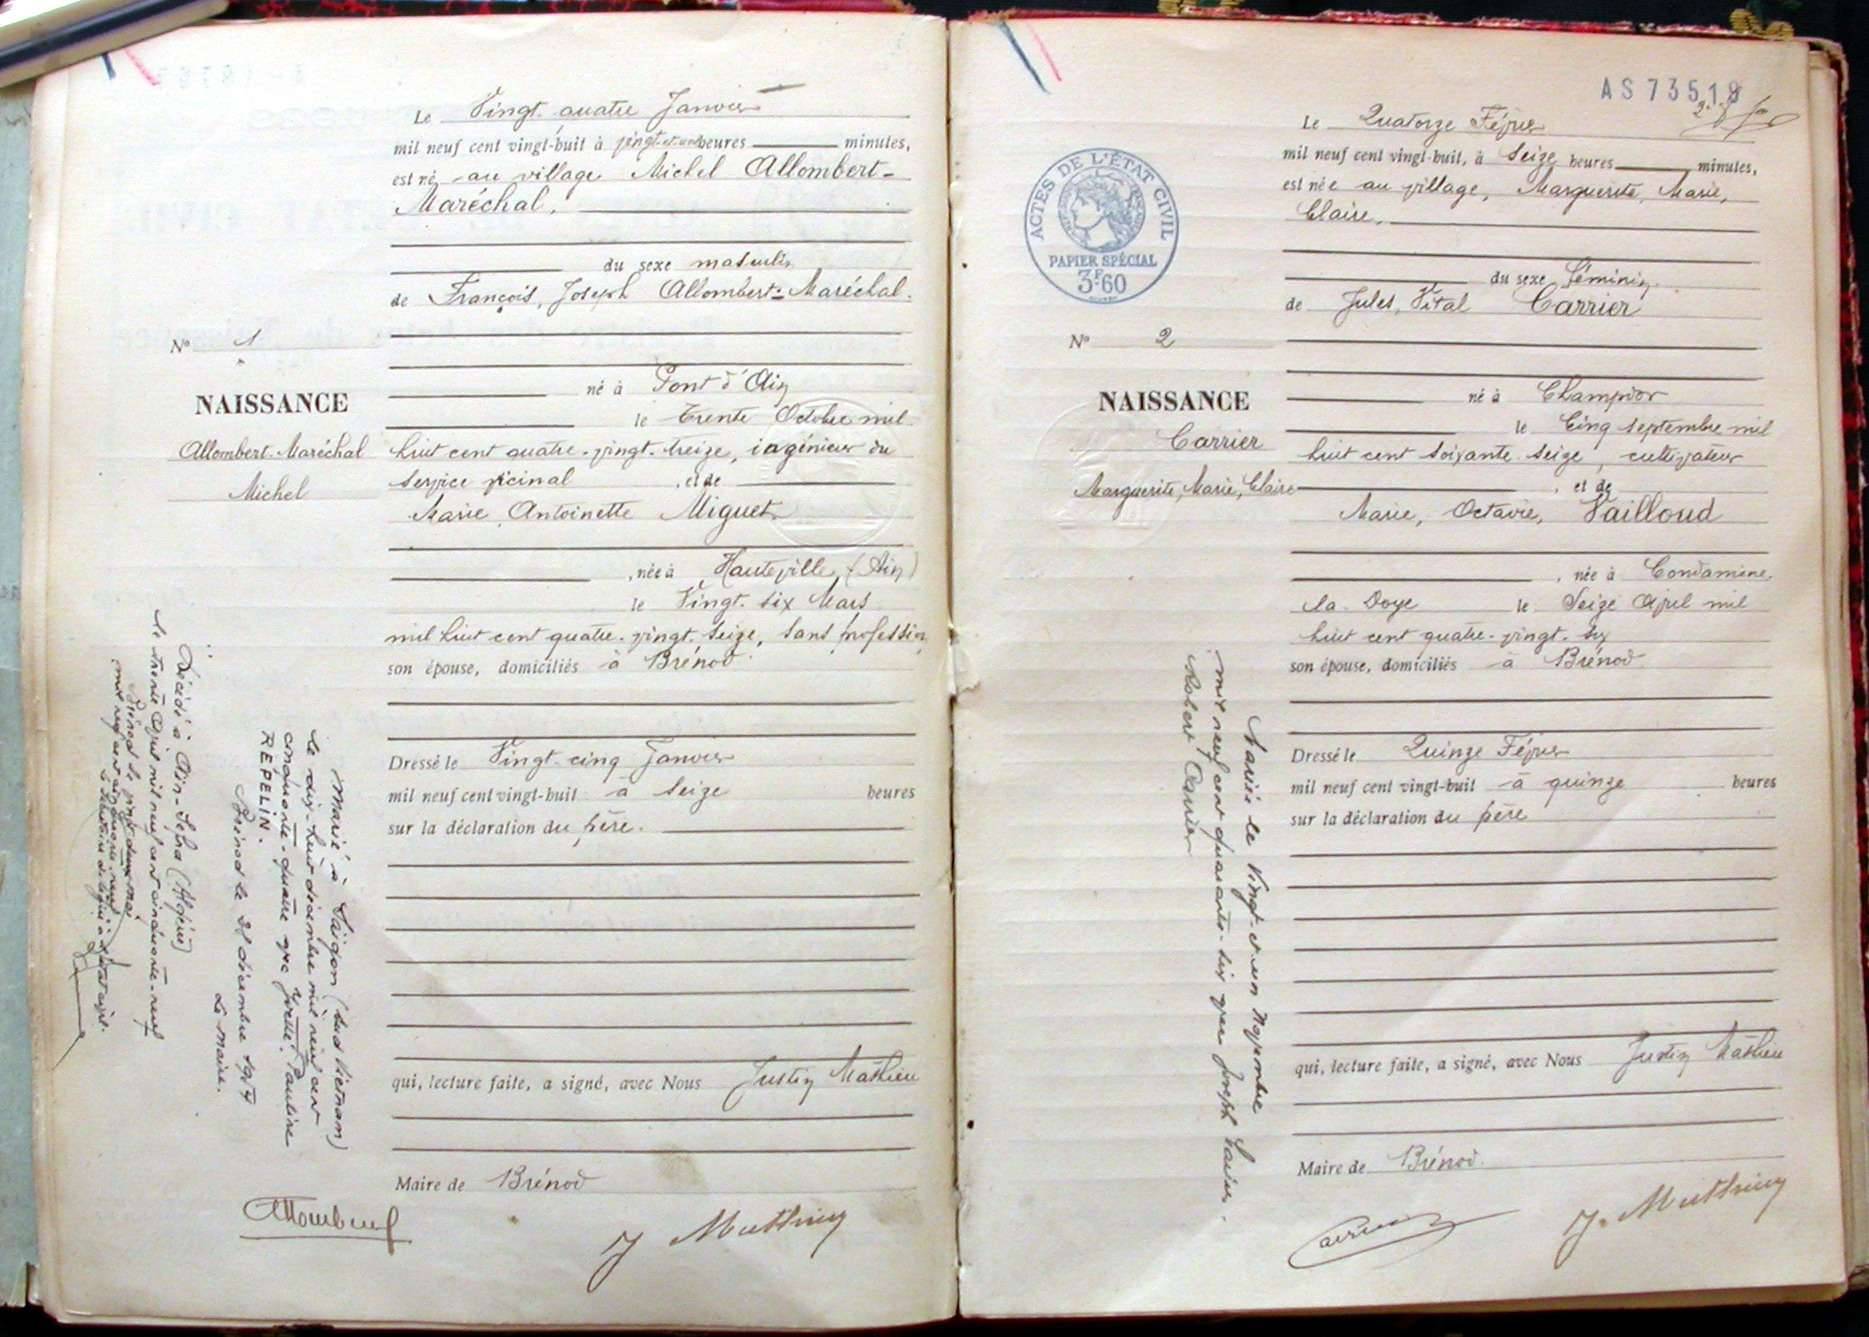 Le Vingt-quatre Janvier
mil neuf cent vingt-huit à vingt-et-une heures minutes,
est né au village Michel Allombert-
Maréchal,
du sexe masculin
de François, Joseph Allombert-Maréchal.
N° 1
né à Pont d'Ain
NAISSANCE
le trente Octobre mil
Allombert-Maréchal
huit cent quatre-vingt-treize, ingénieur du
Michel
service vicinal, et de
Marie Antoinette Miguet
, née à Hauteville (Ain)
le Vingt-six Mars
mil huit cent quatre-vingt-seize, sans profession
son épouse, domiciliés à Brénod
Dressé le Vingt-cinq Janvier
mil neuf cent vingt-huit à seize heures
sur la déclaration du père.
qui, lecture faite, a signé, avec Nous Justin Mathieu
Maire de Brénod
Allombert
J Mathieu
Marié à Saigon (Sud Vietnam)
le dix-huit décembre mil neuf cent
cinquante-quatre avec Yvette, Pauline
REPELIN.
Brénod le décembre 1954
Le Maire.
Décédé à Aïn-Sefra (Algérie)
le trente Avril mil neuf cent cinquante-neuf
Brénod le vingt deux mai
mil neuf cent cinquante neuf
AS 73519
ACTES DE L'ÉTAT CIVIL
PAPIER SPÉCIAL
3F60
Le Quatorze Février
mil neuf cent vingt-huit, à seize heures minutes,
est née au village, Marguerite, Marie,
Claire,
du sexe féminin.
de Jules, Vital Carrier
N° 2
né à Champdor
NAISSANCE
le Cinq septembre mil
Carrier
huit cent soixante-seize, cultivateur
Marguerite, Marie, Claire
, et de
Marie, Octavie, Vailloud
, née à Condamine
la Doye le Seize Avril mil
huit cent quatre-vingt-six
son épouse, domiciliés à Brénod
Dressé le Quinze Février
mil neuf cent vingt-huit à quinze heures
sur la déclaration du père
qui, lecture faite, a signé, avec Nous Justin Mathieu
Maire de Brénod.
Carrier
J. Mathieu
Mariée le Vingt-et-un Novembre
mil neuf cent quarante-six avec Joseph
Robert Carrier